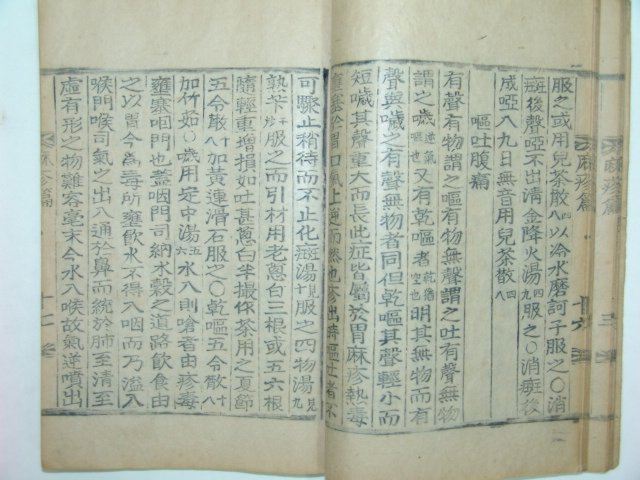 服之或用兒茶散八四以冷水磨訶子服之〇消
斑後聲啞不出淸金降火湯四九服之〇消斑後
成啞八九日無音用兒茶散四八
嘔吐腹篇
有聲有物謂之嘔有物無聲謂之吐有聲無物
謂之噦噦逆氣也又有乾嘔者乾猶空也明其無物而有
聲與噦之有聲無物者同但乾嘔其聲輕小而
短噦其聲重大而長此症皆屬於胃麻疹熱毒
壅塞於胃口氣上逆而然也疹出時嘔吐者不
可驟止稍待而不止化斑湯見十服之四物湯見九
熟芐干炒服之而引材用老蔥白三根或五六根
隨輕重增損如吐甚蔥白半撮依茶用之夏節
五令散八十加黃連滑石服之〇乾嘔五令散八十
加竹茹〇噦用定中湯五六水入則嗆者由疹毒
壅塞咽門也蓋咽門司納水穀之道路飮食由
之以胃今為毒所壅飮水不得入咽而乃溢入
喉門喉司氣之出入通於鼻而統於肺至淸至
虛有形之物難容毫末今水入喉故氣逆噴出
麻疹篇
十六
麻疹篇
十七
麻疹篇